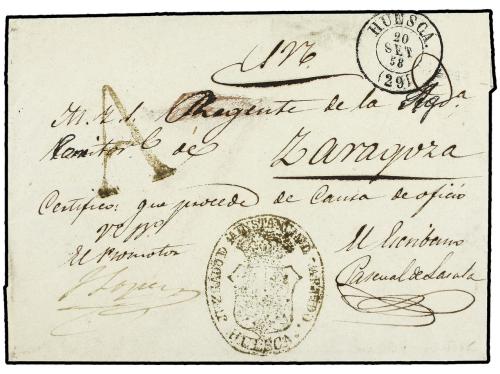 HUESCA.
20
SET
58
(29)
S.N.
M. I. S. Regente de la Aud.a
A
de Zaragoza
Certifico: que procede de causa de oficio
Vº Bº
El Promotor
El Escribano
Pascual de Lasala
JUZGADO DE 1A INSTANCIA DEL PARTIDO
HUESCA.